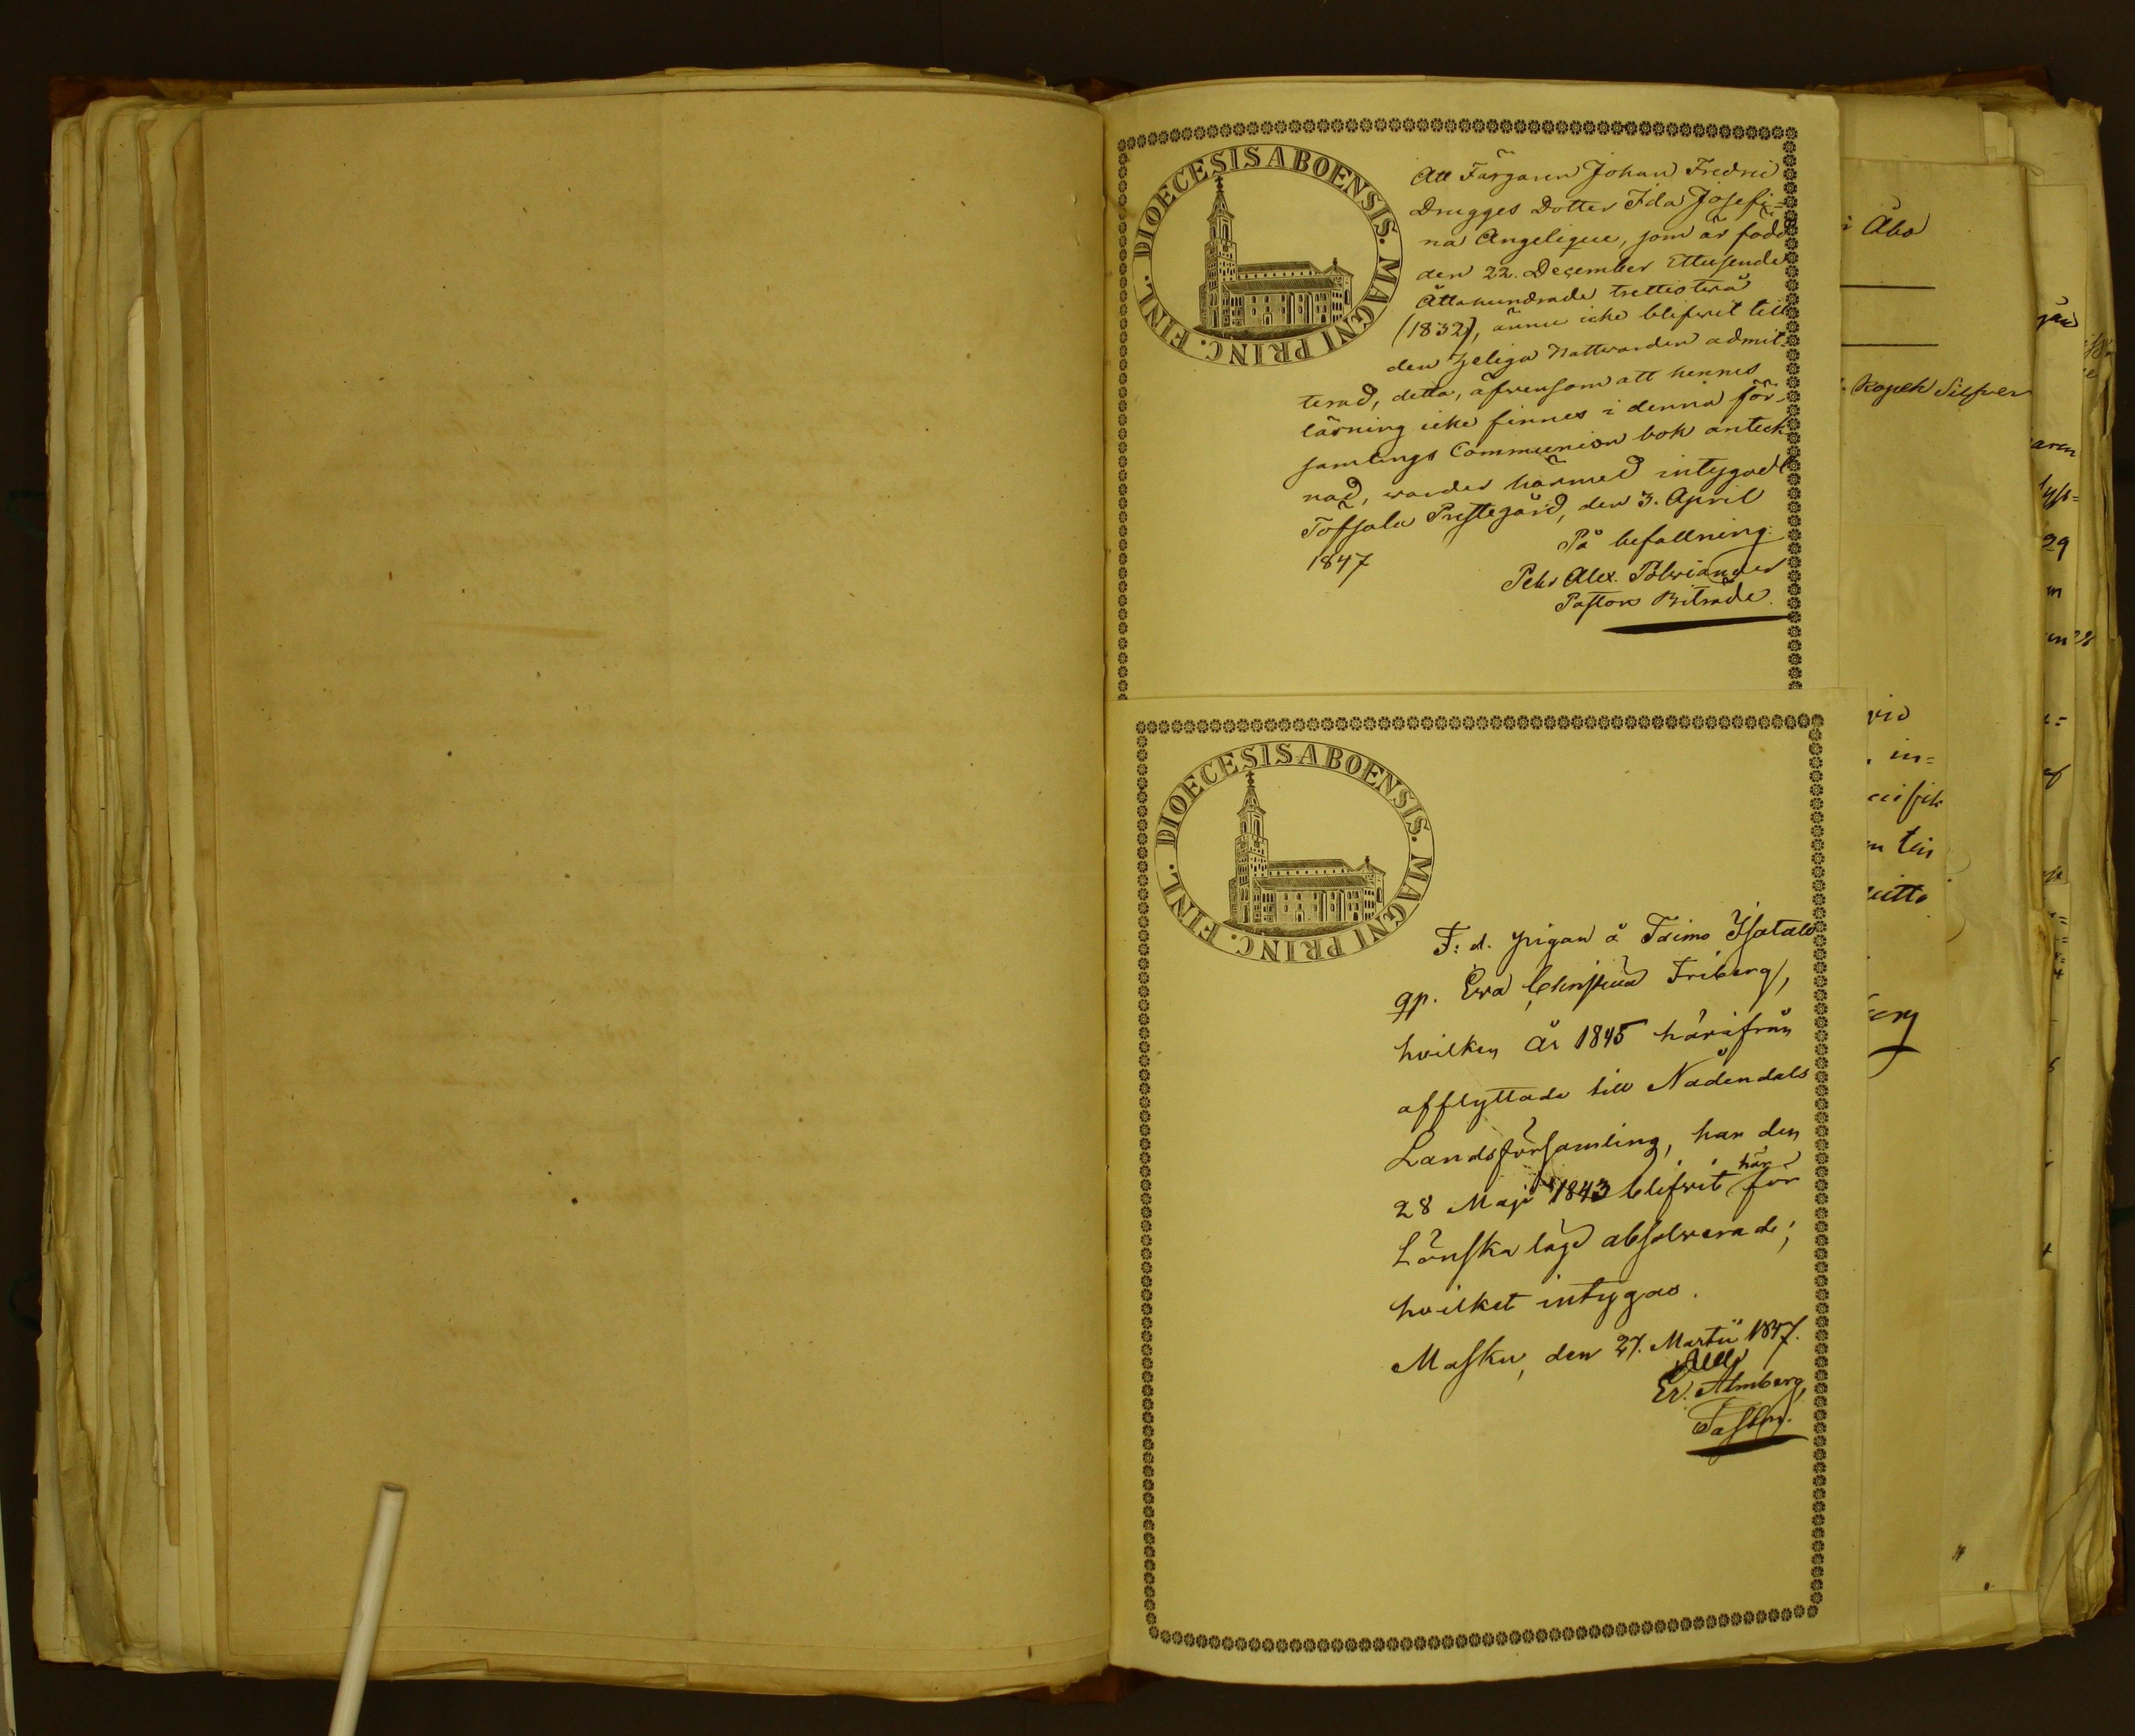 DIOECESIS ABOENSIS. MAGNI PRINC. FINL.
Att Färgaren Johan Fredric
Drugges Dotter Ida Josefi=
na Angelique, som är född
den 22. December Ettusende
Åttahundrade trettiotwå
(1832), ännu icke blifwit till
den heliga Nattwarden admit-
terad, detta, äfwensom att hennes
läsning icke finnes i denna för-
samlings Communion bok anteck-
nad, warder härmed intygadt.
Töfsala Prestegård, den 3. April
1847
På befallning:
Pehr Alex. Polviander
Pastors Biträde.
DIOECESIS ABOENSIS. MAGNI PRINC. FINL.
F: d. pigan å Taimo Isotalo
qp. Ewa Christina Friberg,
hvilken år 1845 härifrån
afflyttade till Nådendals
Landsförsamling, har den
28 Maji 1843 blifwit här för
Lönskaläge absolverade;
hvilket intygas.
Masku, den 27. Martii 1847.
Er. Almberg,
Pastor.
i Åbo
Kopek Silfver